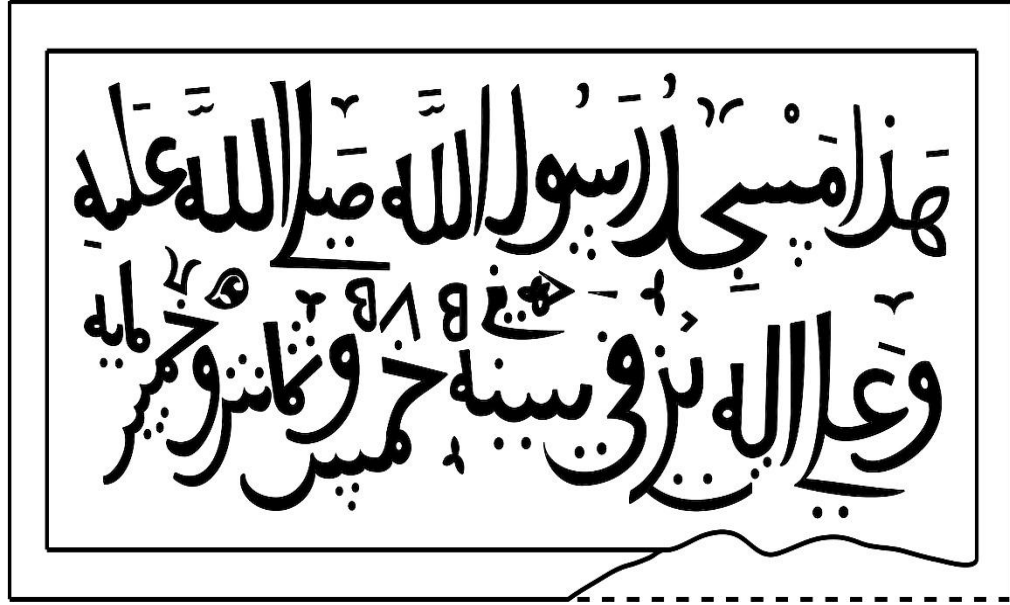 هَذا مَسْجِدُ رَسُول اللَّه صَلي اللَّه عَليهِ
وَعَلي اله في سنه خمس وثمانين وخمسمايه
٥٨٥